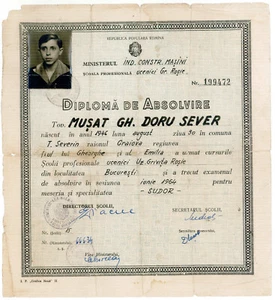 REPUBLICA POPULARĂ ROMÂNĂ
MINISTERUL IND. CONSTR. MAȘINI
ȘCOALA PROFESIONALĂ ucenici Gr. Roșie
Nr. 199472
DIPLOMĂ DE ABSOLVIRE
Tov. MUȘAT GH. DORU SEVER
născut în anul 1946 luna august ziua 30 în comuna
T. Severin raionul Craiova regiunea
fiul lui Gheorghe și al a urmat cursurile
Școlii profesionale ucenici Uz. Grivița Roșie
din localitatea București și a trecut examenul
de absolvire în sesiunea iunie 1964 pentru
meseria și specialitatea - SUDOR -
DIRECTORUL ȘCOLII,
SECRETARUL ȘCOLII,